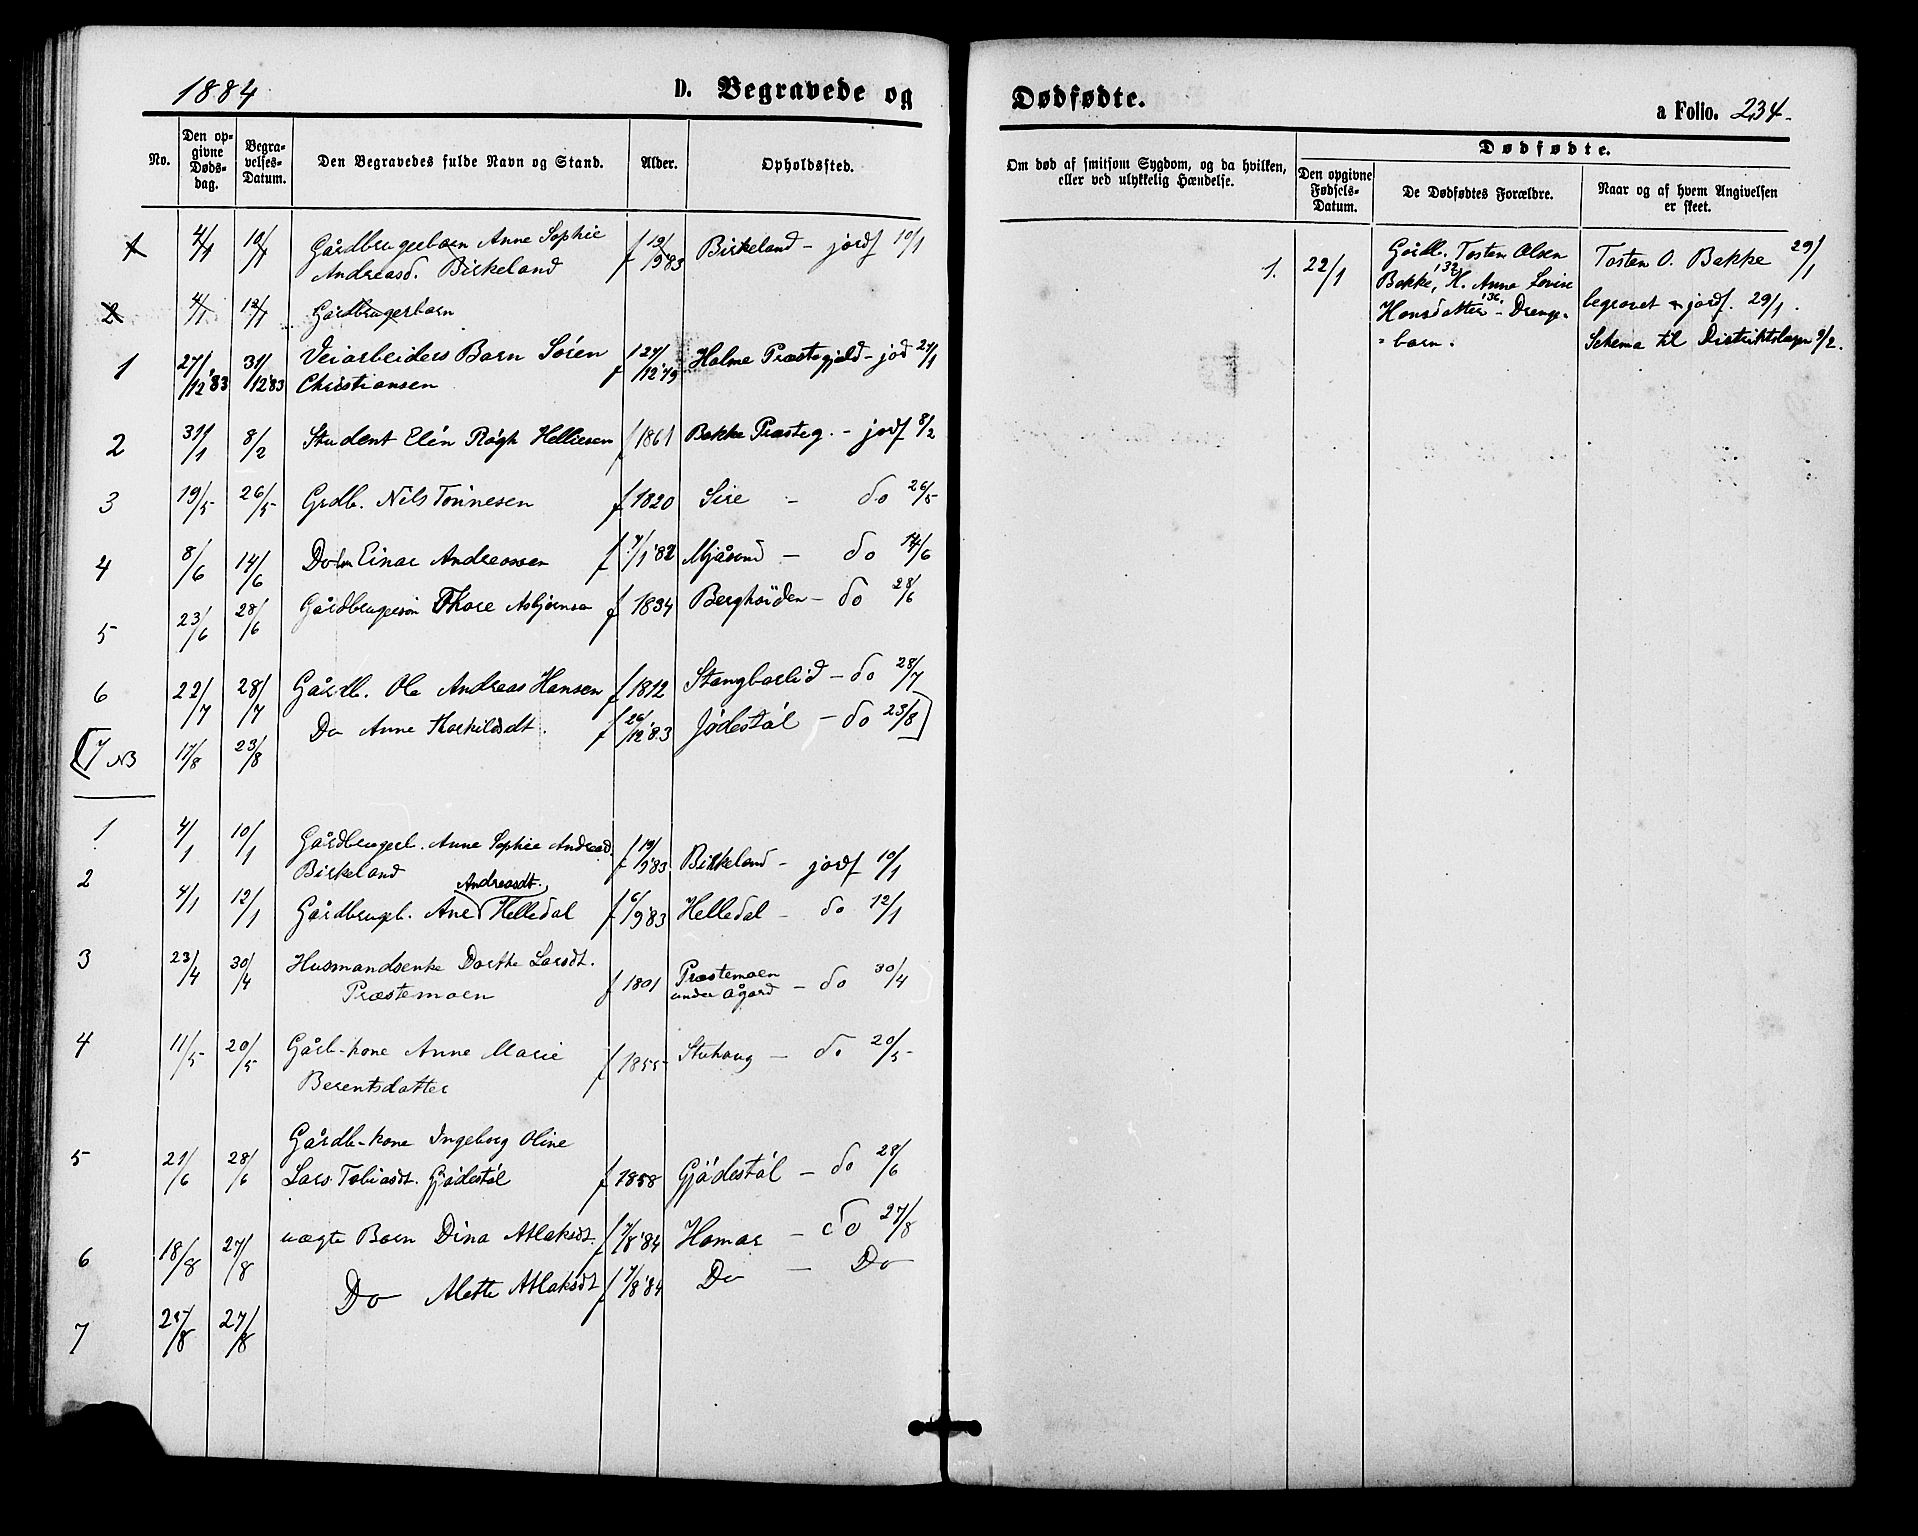 1884
D. Begravede og
No.
Den op-
givne
Døds-
dag.
Begra-
velses-
Datum.
Den Begravedes fulde Navn og Stand.
Alder.
Opholdssted.
1 4/1 10/1 Gårdbrugerbarn Anne Sophie f 19/9 83 Birkeland - jordf 10/1
Andreasd. Birkeland
2 4/1 12/1 Gårdbrugerbarn
1 27/12 '83 31/12 83 Veiarbeiders Barn Søren f 27/12 '79 Holme Præstegjeld - jod 27/1
Christiansen
2 31/1 8/2 Student Elén Røgh Helliesen f 1861 Bakke Præsteg. - jordf 8/2
3 19/5 26/5 Grdb. Nils Tønnesen f 1820 Sire - do 26/5
4 8/6 14/6 Do Einar Andreassen f 7/1 '82 Mjåsund - do 14/6
5 23/6 28/6 Gårdbruger Thore Asbjørnsen f 1834 Berghöiden - do 28/6
6 22/7 28/7 Gårdb. Ole Andreas Hansen f 1812 Stangborlid - do 28/7
[7 NB 17/8 23/8 Do Anne Thorkildsdt. f 26/12 '83 Jødestøl - do 23/8]
1 4/1 10/1 Gårdbrugerb. Anne Sophie Andreasd. f 19/9 83 Birkeland - jordf 10/1
Birkeland
Andreasdt.
2 4/1 12/1 Gårdbrugerb. Ane Helledal f 6/9 83 Helledal - do 12/1
3 23/4 30/4 Husmandsenke Dorthe Larsdt. f 1801 Præstemoen - do 30/4
Præstemoen under Ågård
4 11/5 20/5 Gårb-kone Anne Marie f 1855 Stuhaug - do 20/5
Berentsdatter
Gårdb-kone Ingeborg Oline
5 21/6 28/6 Lars Tobiasdt. Gjødestøl f 1858 Gjødestøl - do 28/6
6 18/8 27/8 uægte Barn Dina Atlaksdt. f 7/8 '84 Homar - do 27/8
7 25/8 27/8 Do Alette Atlaksdt f 7/8 '84 Do - Do
Dødfødte.
a Folio. 234.
Om død af smitsom Sygdom, og da hvilken,
eller ved ulykkelig Hændelse.
Dødfødte.
Den opgivne
Fødsels-
Datum.
De Dødfødtes Forældre.
Naar og af hvem Angivelsen
er skeet.
1. 22/1 Gårdb. Tosten Olsen Tosten O. Bakke 29/1
Bakke, K. Anna Lovise begravet jordf. 29/1.
Hansdatter - Drenge-
- barn. Schema til Distriktslægen 9/2.